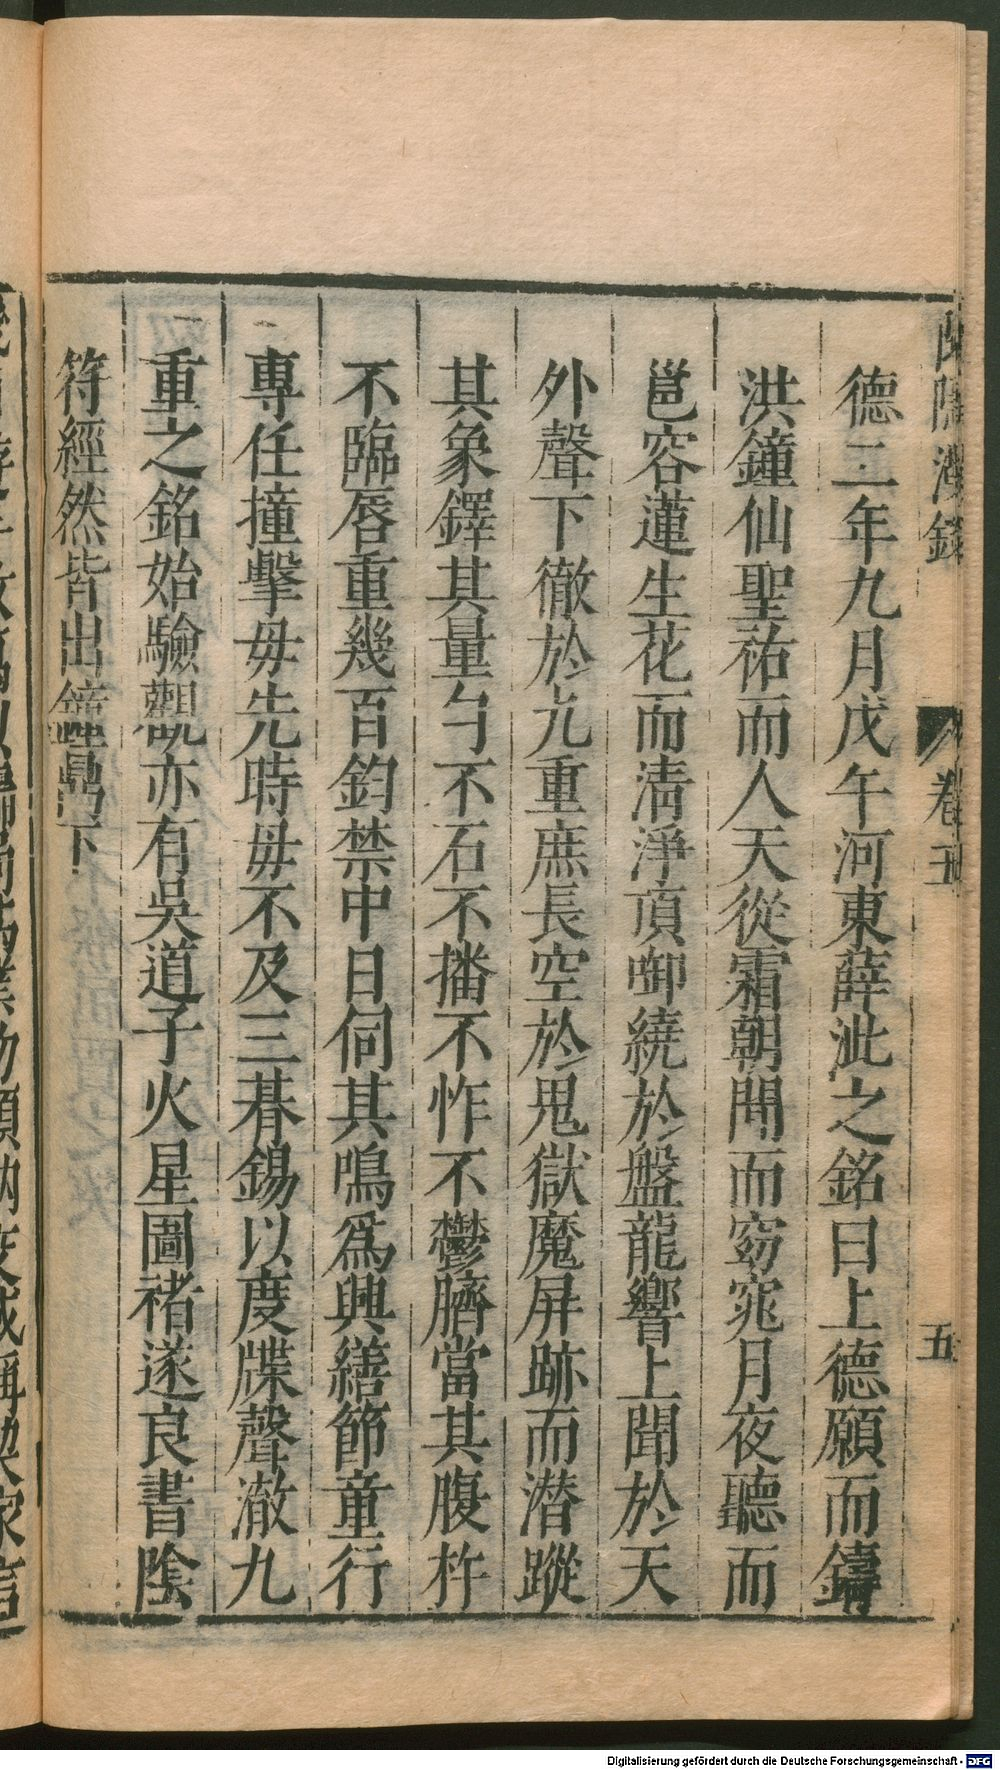 德二年九月戊午河東薛泚之銘曰上德願而鑄
洪鐘仙聖祐而人天從霜朝聞而窈窕月夜聽而
邕容蓮生花而清淨頂啣繞於盤龍響上聞於天
外聲下徹於九重庶長空於鬼獄魔屏跡而潛蹤
其象鐸其量勻不石不播不怍不鬱臍當其腹杵
不臨唇重幾百鈞禁中日伺其鳴爲興繕節童行
專任撞擊毋先時毋不及三朞錫以度牒聲澈九
重之銘始驗觀亦有吳道子火星圖褚遂良書陰
符經然皆出鐘䵻下
卷五
五
Digitalisierung gefördert durch die Deutsche Forschungsgemeinschaft - DFG